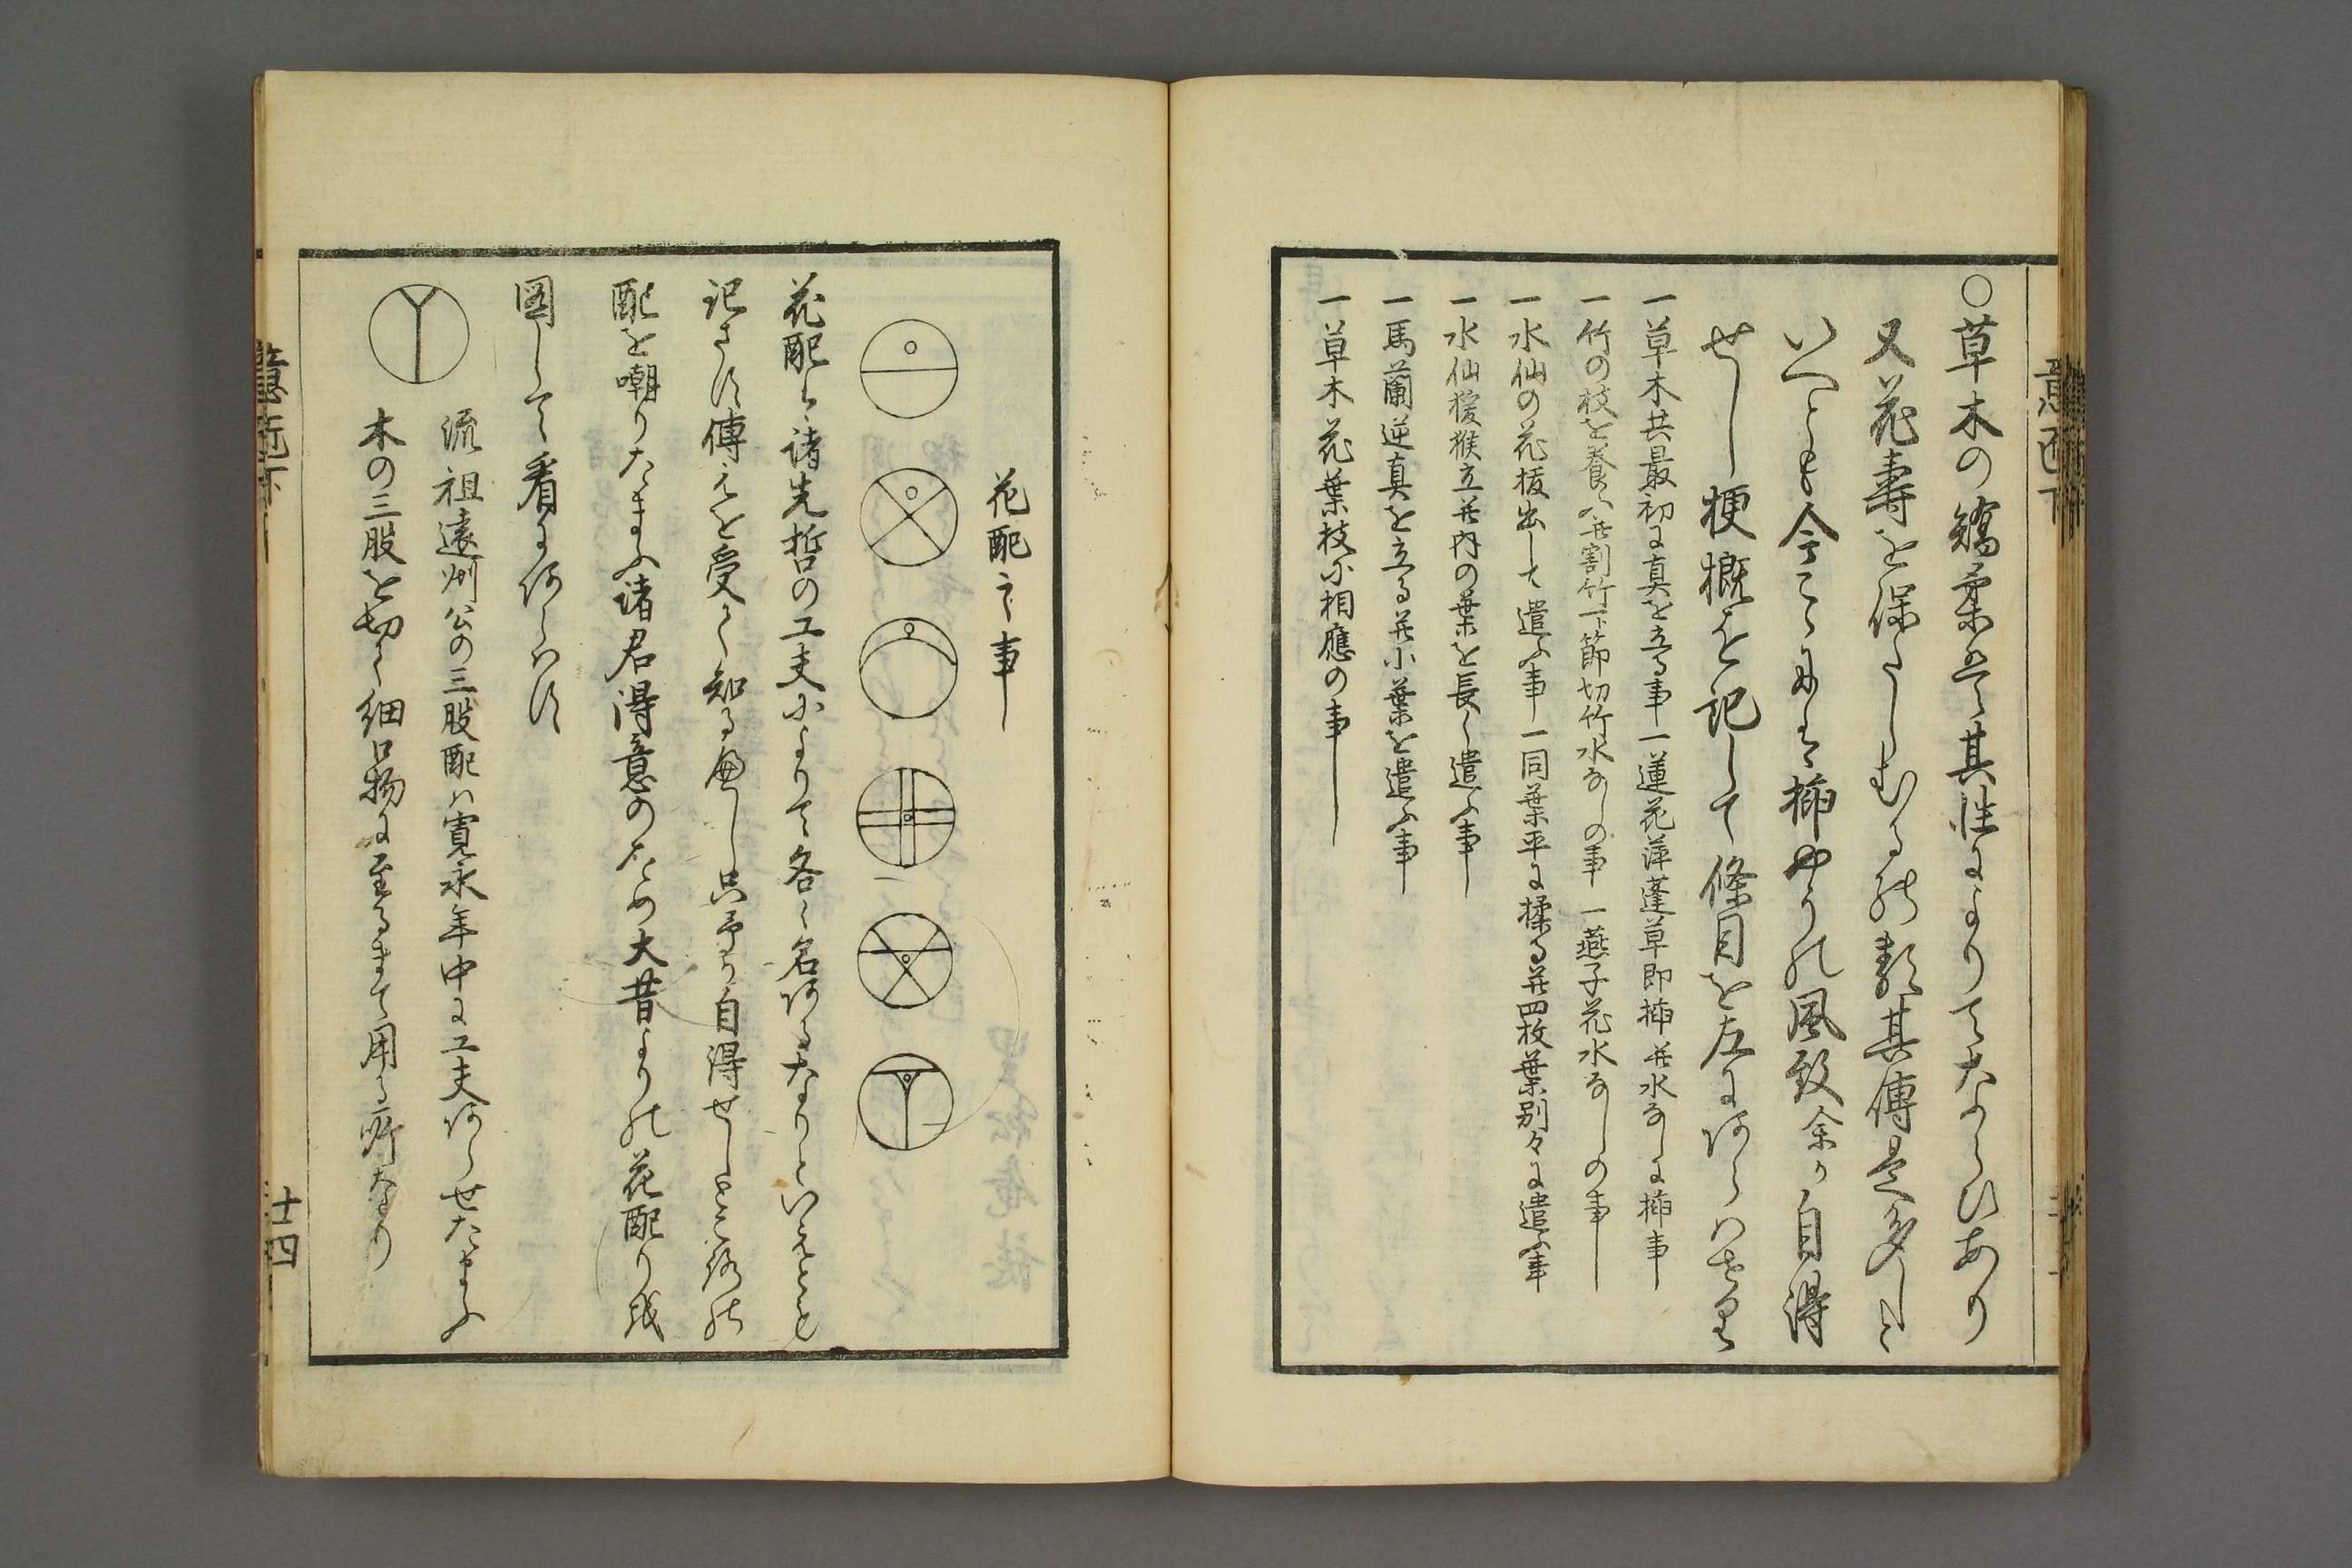 ○草木の矯柔はその其性によりてならひあり
又花壽を保たしむるの類其傳是多しと
いへとも今こゝには挿やうの風致余か自得
せし梗概を記して條目を左にあらはせるも
一草木共最初に真を立る事一蓮花萍蓬草即挿并水なしに挿事
一竹の枝を養ふ并割竹一下節切竹水なしの事 一燕子花水なしの事
一水仙の花抜出して遣ふ事 一同葉平に揉る并四枚葉別々に遣ふ事
一水仙猨猴立并内の葉を長く遣ふ事
一馬蘭逆真を立る并小葉を遣ふ事
一草木花葉枝に相應の事
花配之事
花配は諸先哲の工夫によりて各々名あるなりといえとも
記さす傳えを受て知る
自得せしところの
配を嘲りたまふ諸君得意のため大昔よりの花配り
図して看にあらはす
流祖遠州公の三股配ハ寛永年中に工夫あらせたまふ
木の三股を切て細口物に至るまて用る所なり
十四